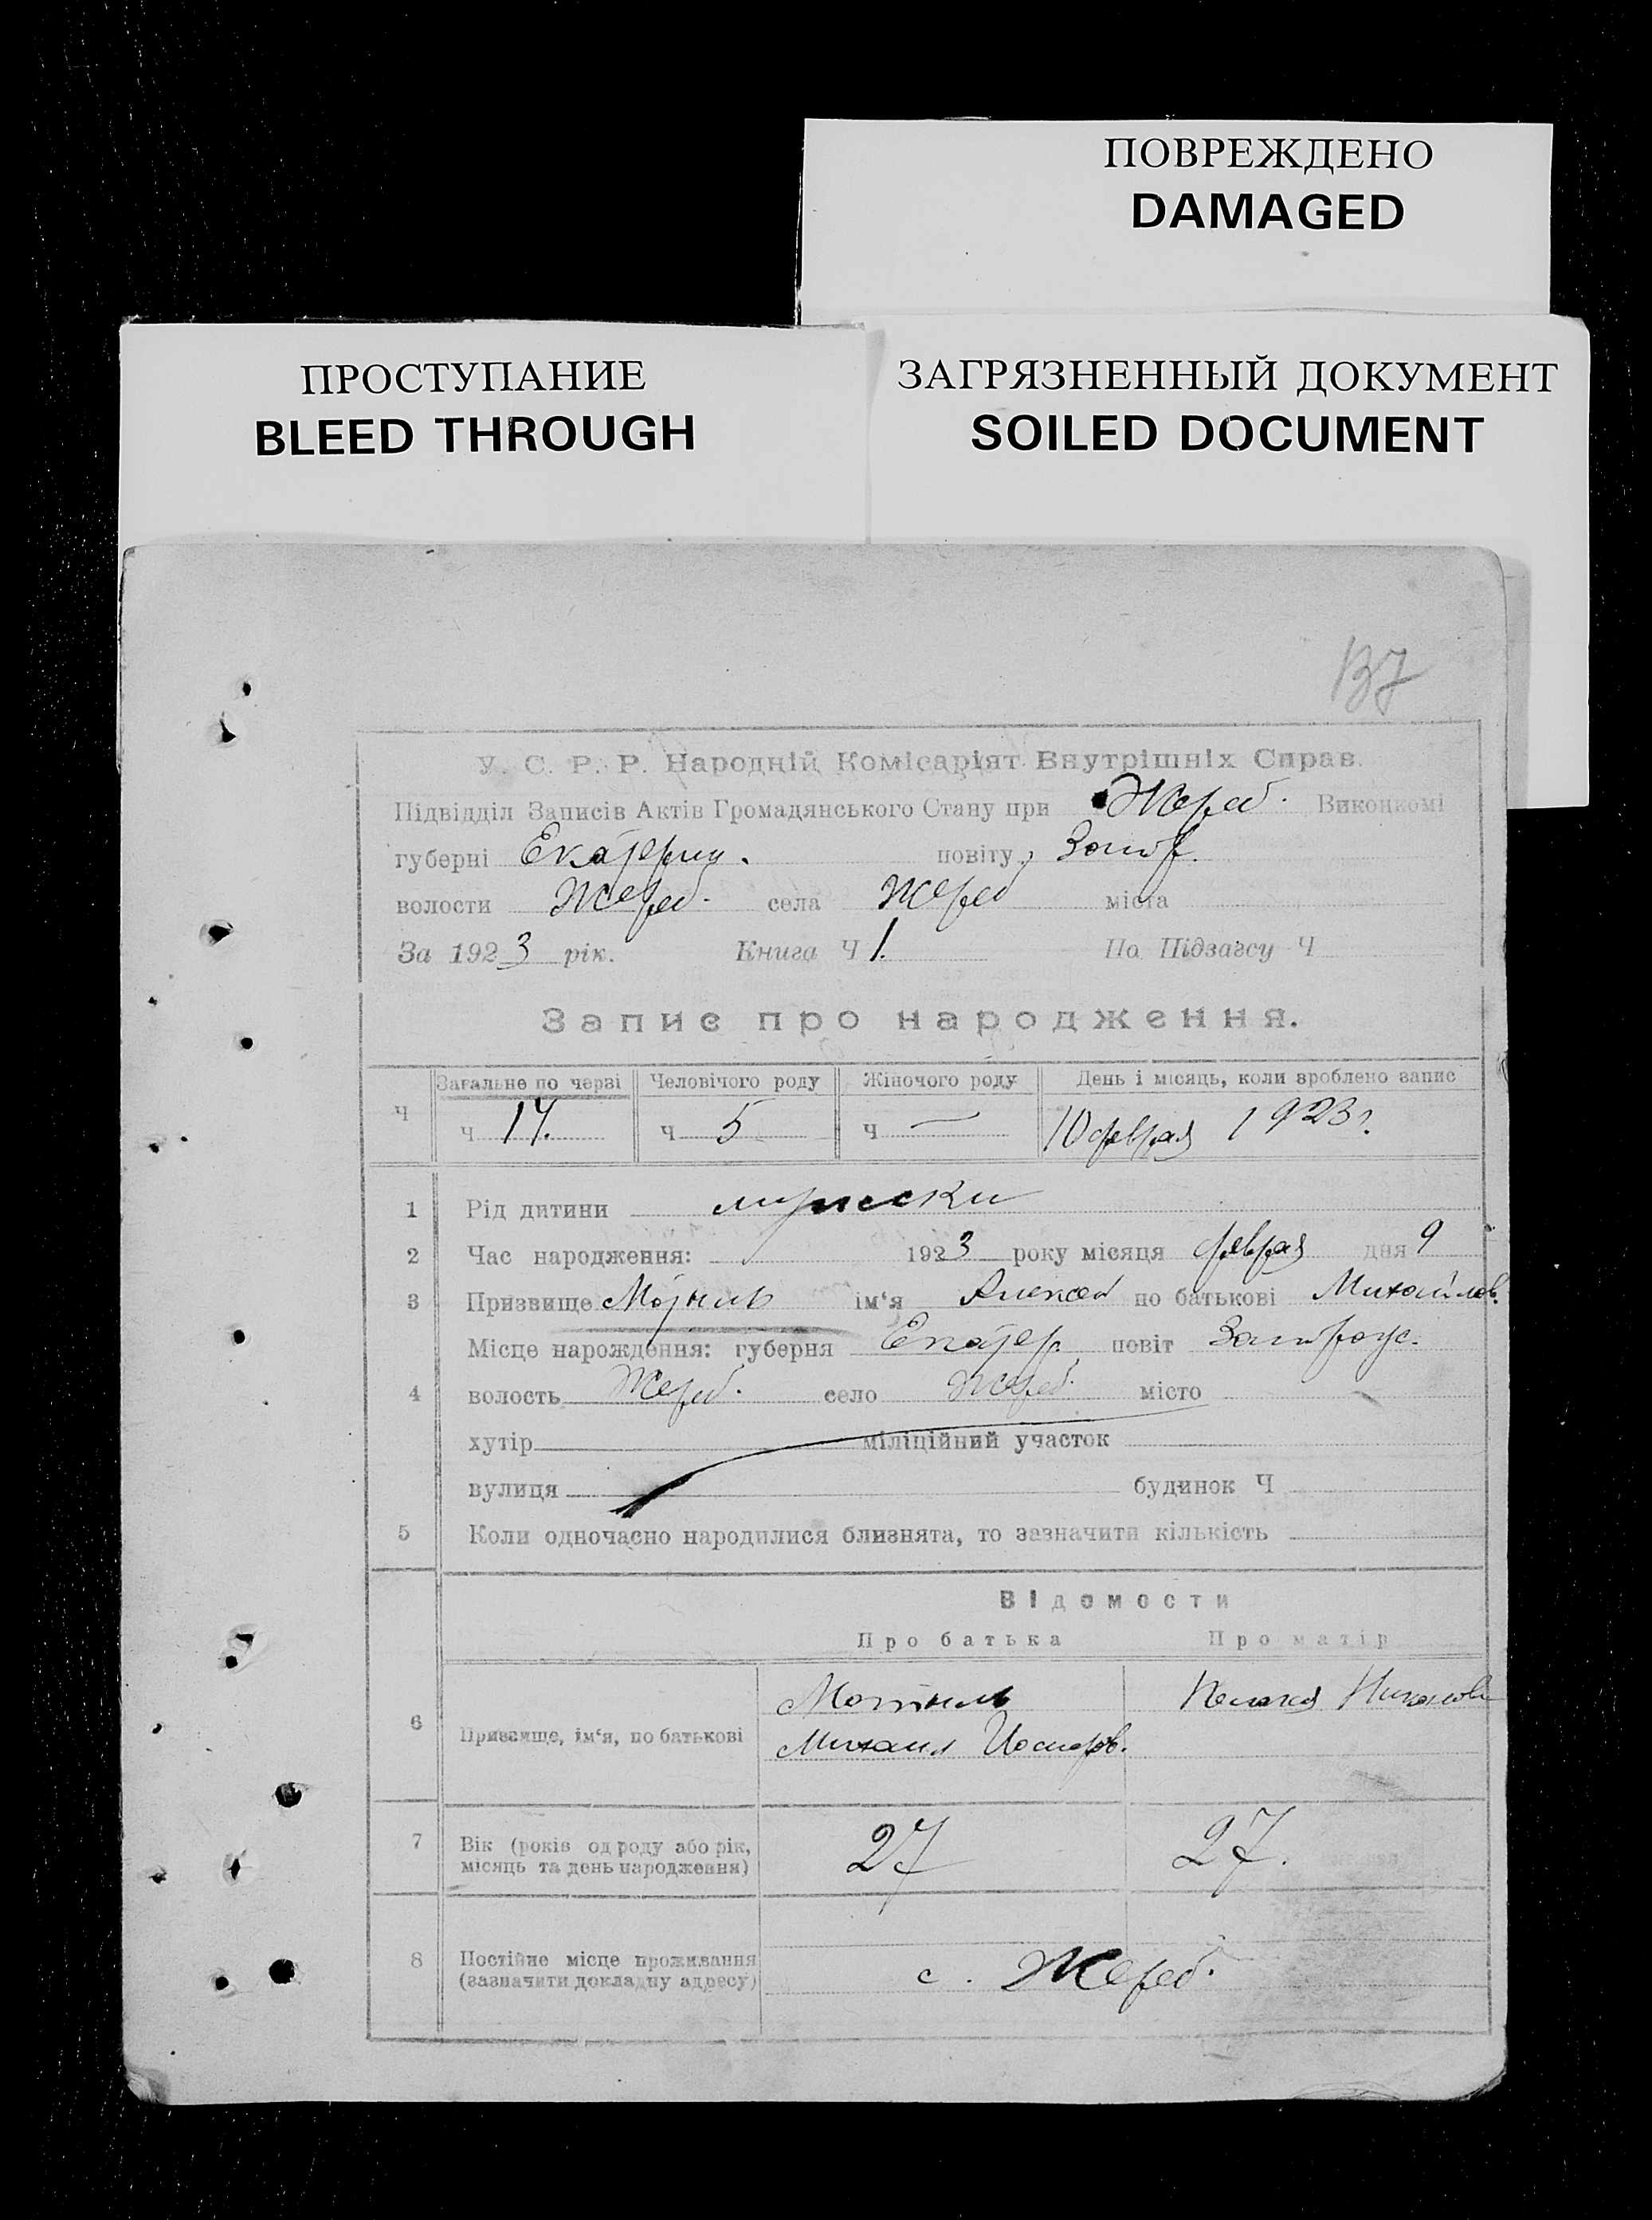 ПОВРЕЖДЕНО
DAMAGED
ПРОСТУПАНИЕ
BLEED THROUGH
ЗАГРЯЗНЕННЫЙ ДОКУМЕНТ
SOILED DOCUMENT
137
У. С. Р. Р. Народній Комісаріят Внутрішніх Справ.
Підвідділ Записів Актів Громадянського Стану при Жереб. Виконкомі
губерні Екатерин. повіту Запор.
волости Жереб. села Жереб міста
За 1923 рік. Книга Ч 1. По Підзагсу Ч
Запис про народження.
Ч Загальне по черзі Человічого роду Жіночого роду День і місяць, коли зроблено запис
ч 14. ч 5 ч — 10 феврая 1923 г.
1 Рід дитини мужески
2 Час народження: 1923 року місяця феврая дня 9
3 Призвище Мотниль ім‘я Алексей по батькові Михайлов.
Місце нарождення: губерня Екатер. повіт Запорож.
4 волость Жереб. село Жереб. місто
хутір міліційний участок
вулиця будинок Ч
5 Коли одночасно народилися близнята, то зазначити кількість
Відомости
Про батька Про матір
6 Призвище, ім‘я, по батькові
Мотниль
Михаил Иосифов.
Пелагея Николаевн
7 Вік (років од роду або рік, місяць та день народження) 27 27.
8 Постійне місце проживання (зазначити докладну адресу) с. Жереб.